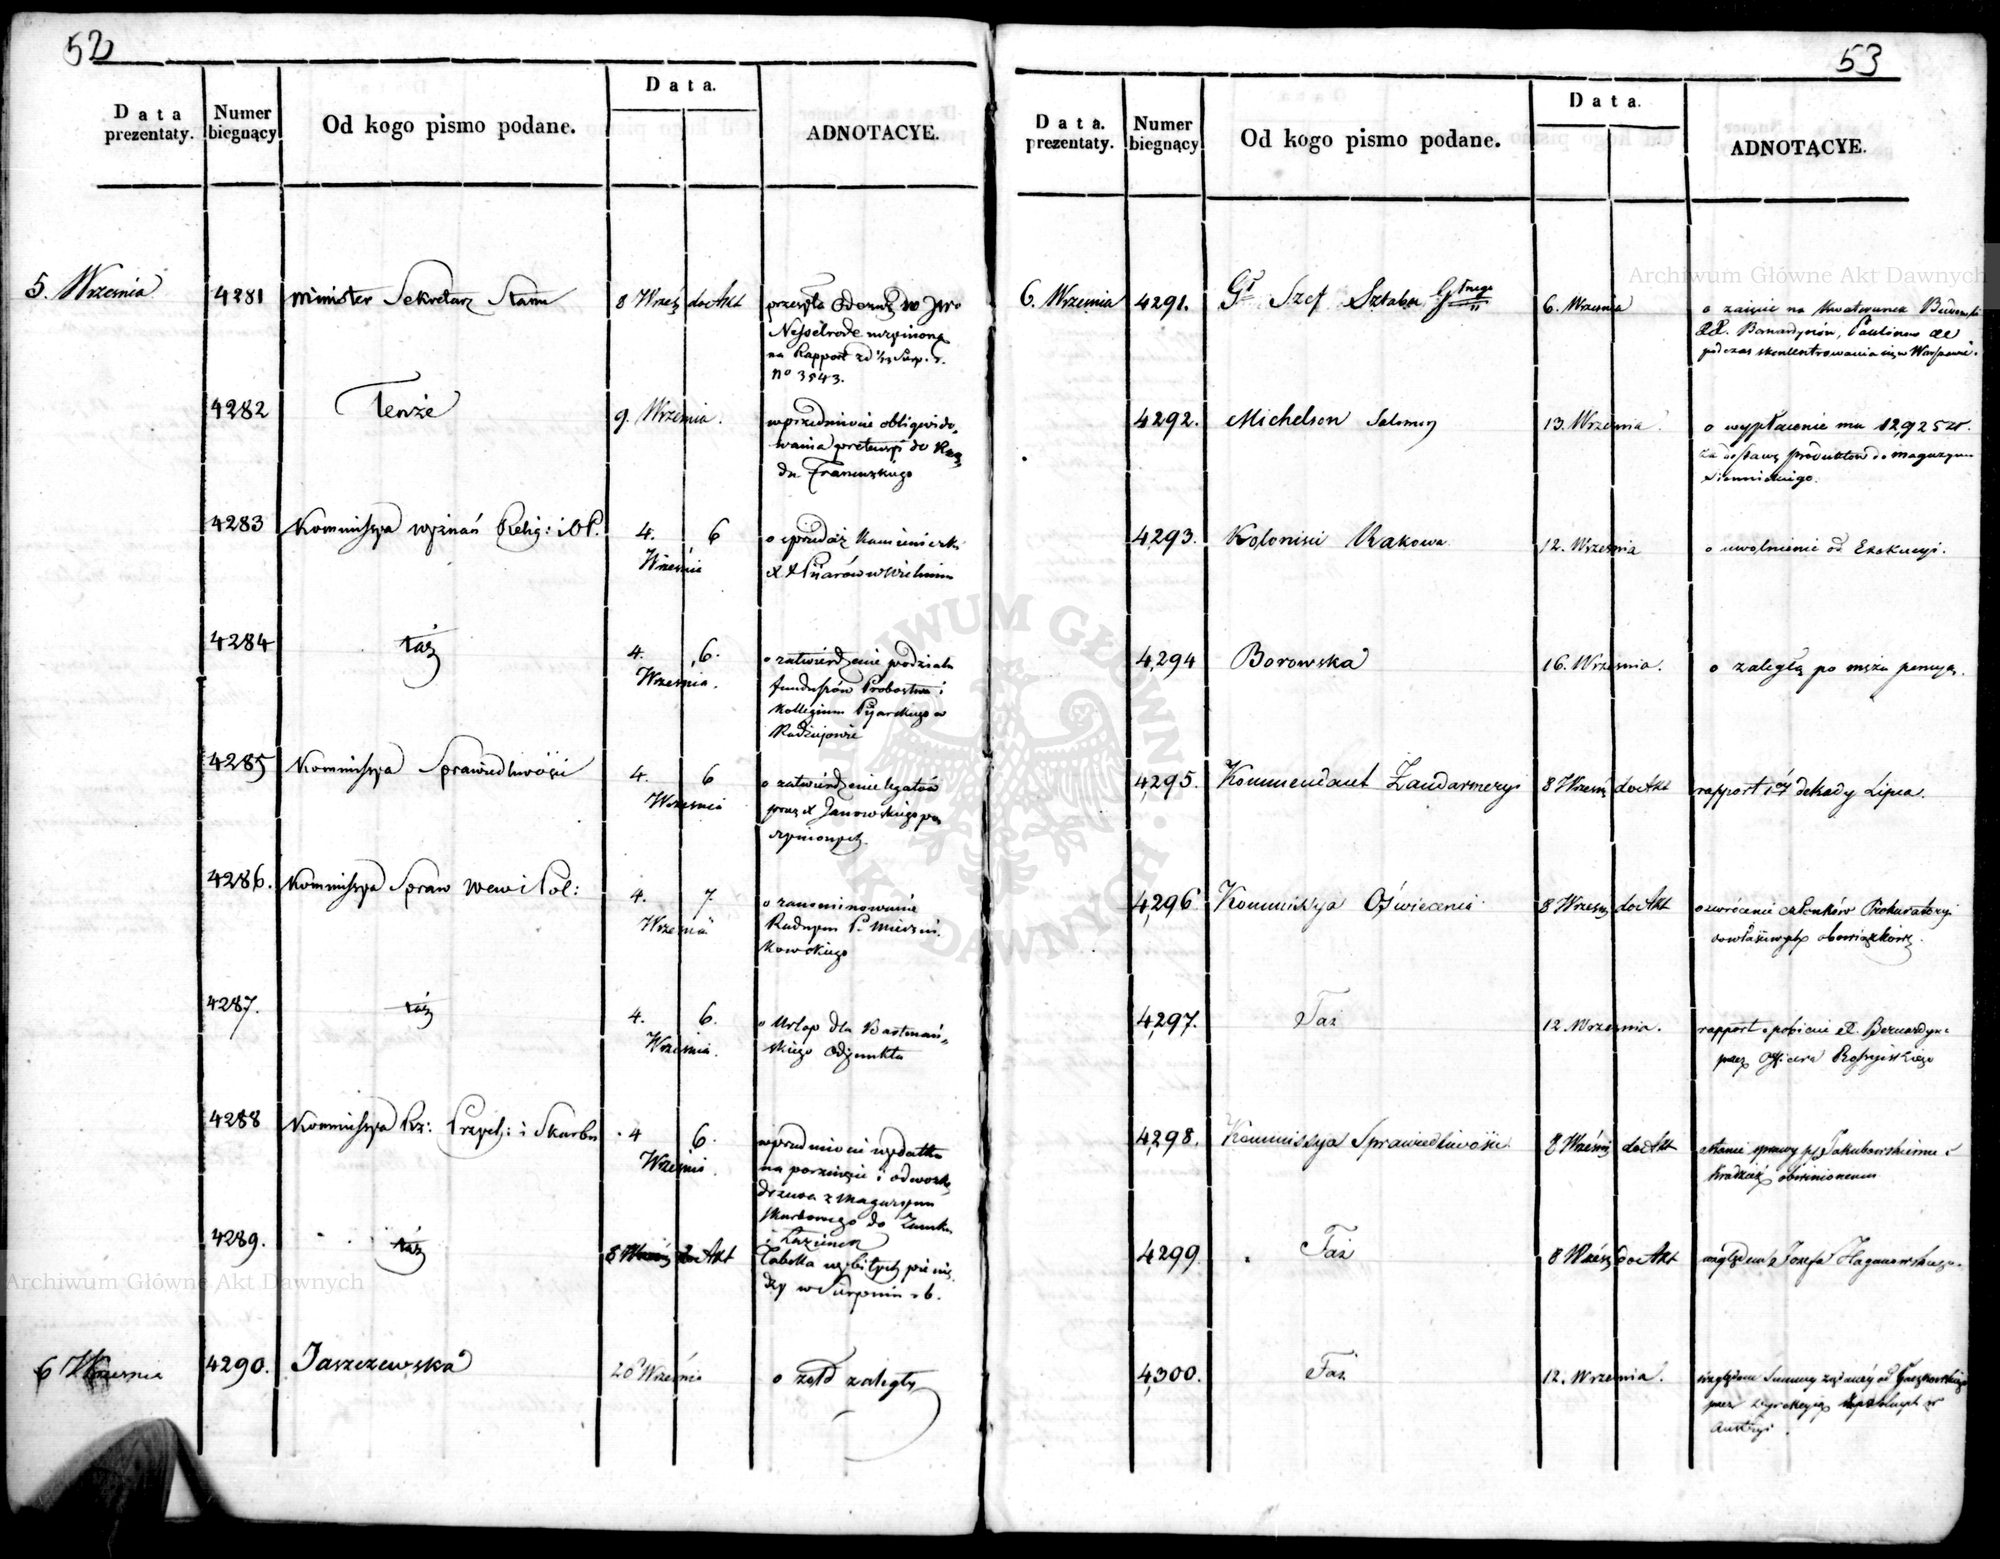 52
Data prezentaty.
Numer biegnący
Od kogo pismo podane.
Data.
ADNOTACYE.
5. Września
4281 Minister Sekretarz Stanu 8 Wrześ do Akt
przesyła Odezwę
Nesselrode
na Rapport
no 3543.
4282 Tenże 9. Września.
w przedmiocie oblikwido-
wania pretensji do Rzą-
du Francuzkiego
4283 Kommissya wyznań Relig: i OP. 4. 6 Wrześnie
o sprzedaż Kamieniczki
XX Pijarów w Wieluniu
4284 táż 4. 6. Września.
o zatwierdzenie podziału
funduszów Probostwa i
Kollegium Pijarskiego w
Radziejowie
4285 Kommissya Sprawiedliwości 4. 6 Września
o zatwierdzenie legatów
przez X Janowskiego po
czynionych.
4286. Kommissya Spraw Wew i Pol: 4. 7. Września
o zanominowanie
Radnym P.
kowskiego
4287. táż 4. 6. Września.
o Urlop dla
skiego Adjunkta
4288 Kommissya Rz: Przych: i Skarbu 4 6. Września.
w przedmiocie wydatku
na porznięcie i odwózkę
drzewa z Magazynu
skarbowego do Zamku
i Łazienek
4289. táż 8 Wrześ do Akt
Tabella wybitych pienię-
dzy w Sierpniu r b.
6 Września
4290. Jaszczewska 20 Września
o żołd zaległy
53
Data. prezentaty.
Numer biegnący
Od kogo pismo podane.
Data.
ADNOTACYE.
6. Września
4291. Szef Sztabu 6. Września
o zajęcie na Kwaterunek
XX. Bernardynów, Paulinów
podczas skoncentrowania się w Warszawie.
4292. Michelson Salomon 13. Września.
o wypłacenie mu 12,925 zł.
za dostawę produktów do magazynu
4293. Koloniści Rakowa 12. Września
o uwolnienie od Exekucyi.
4294 Borowska 16. Września.
o zaległą po mężu pensyą.
4295. Kommendant Żandarmeryi 8 Wrześ do Akt
rapport 1éj dekady Lipca.
4296 Kommissya Oświecenia 8 Wrześ do Akt
o zwrócenie członków Prokuratoryi
do właściwych obowiązków.
4297. Taż 12. Września.
rapport o pobiciu X. Bernardyna
przez Officera Rossyiskiego
4298. Kommissya Sprawiedliwości 8 Wrześ do Akt
o stanie sprawy p. Jakubowskiemu o
Kradzież obwinionemu
4299 Taż 8 Wrześ do Akt
względem Józefa
4300. Taż 12. Września.
względem Summy żądanéy od
przez
Austryi.
Archiwum Główne Akt Dawnych
Archiwum Główne Akt Dawnych
ARCHIWUM GŁÓWNE AKT DAWNYCH